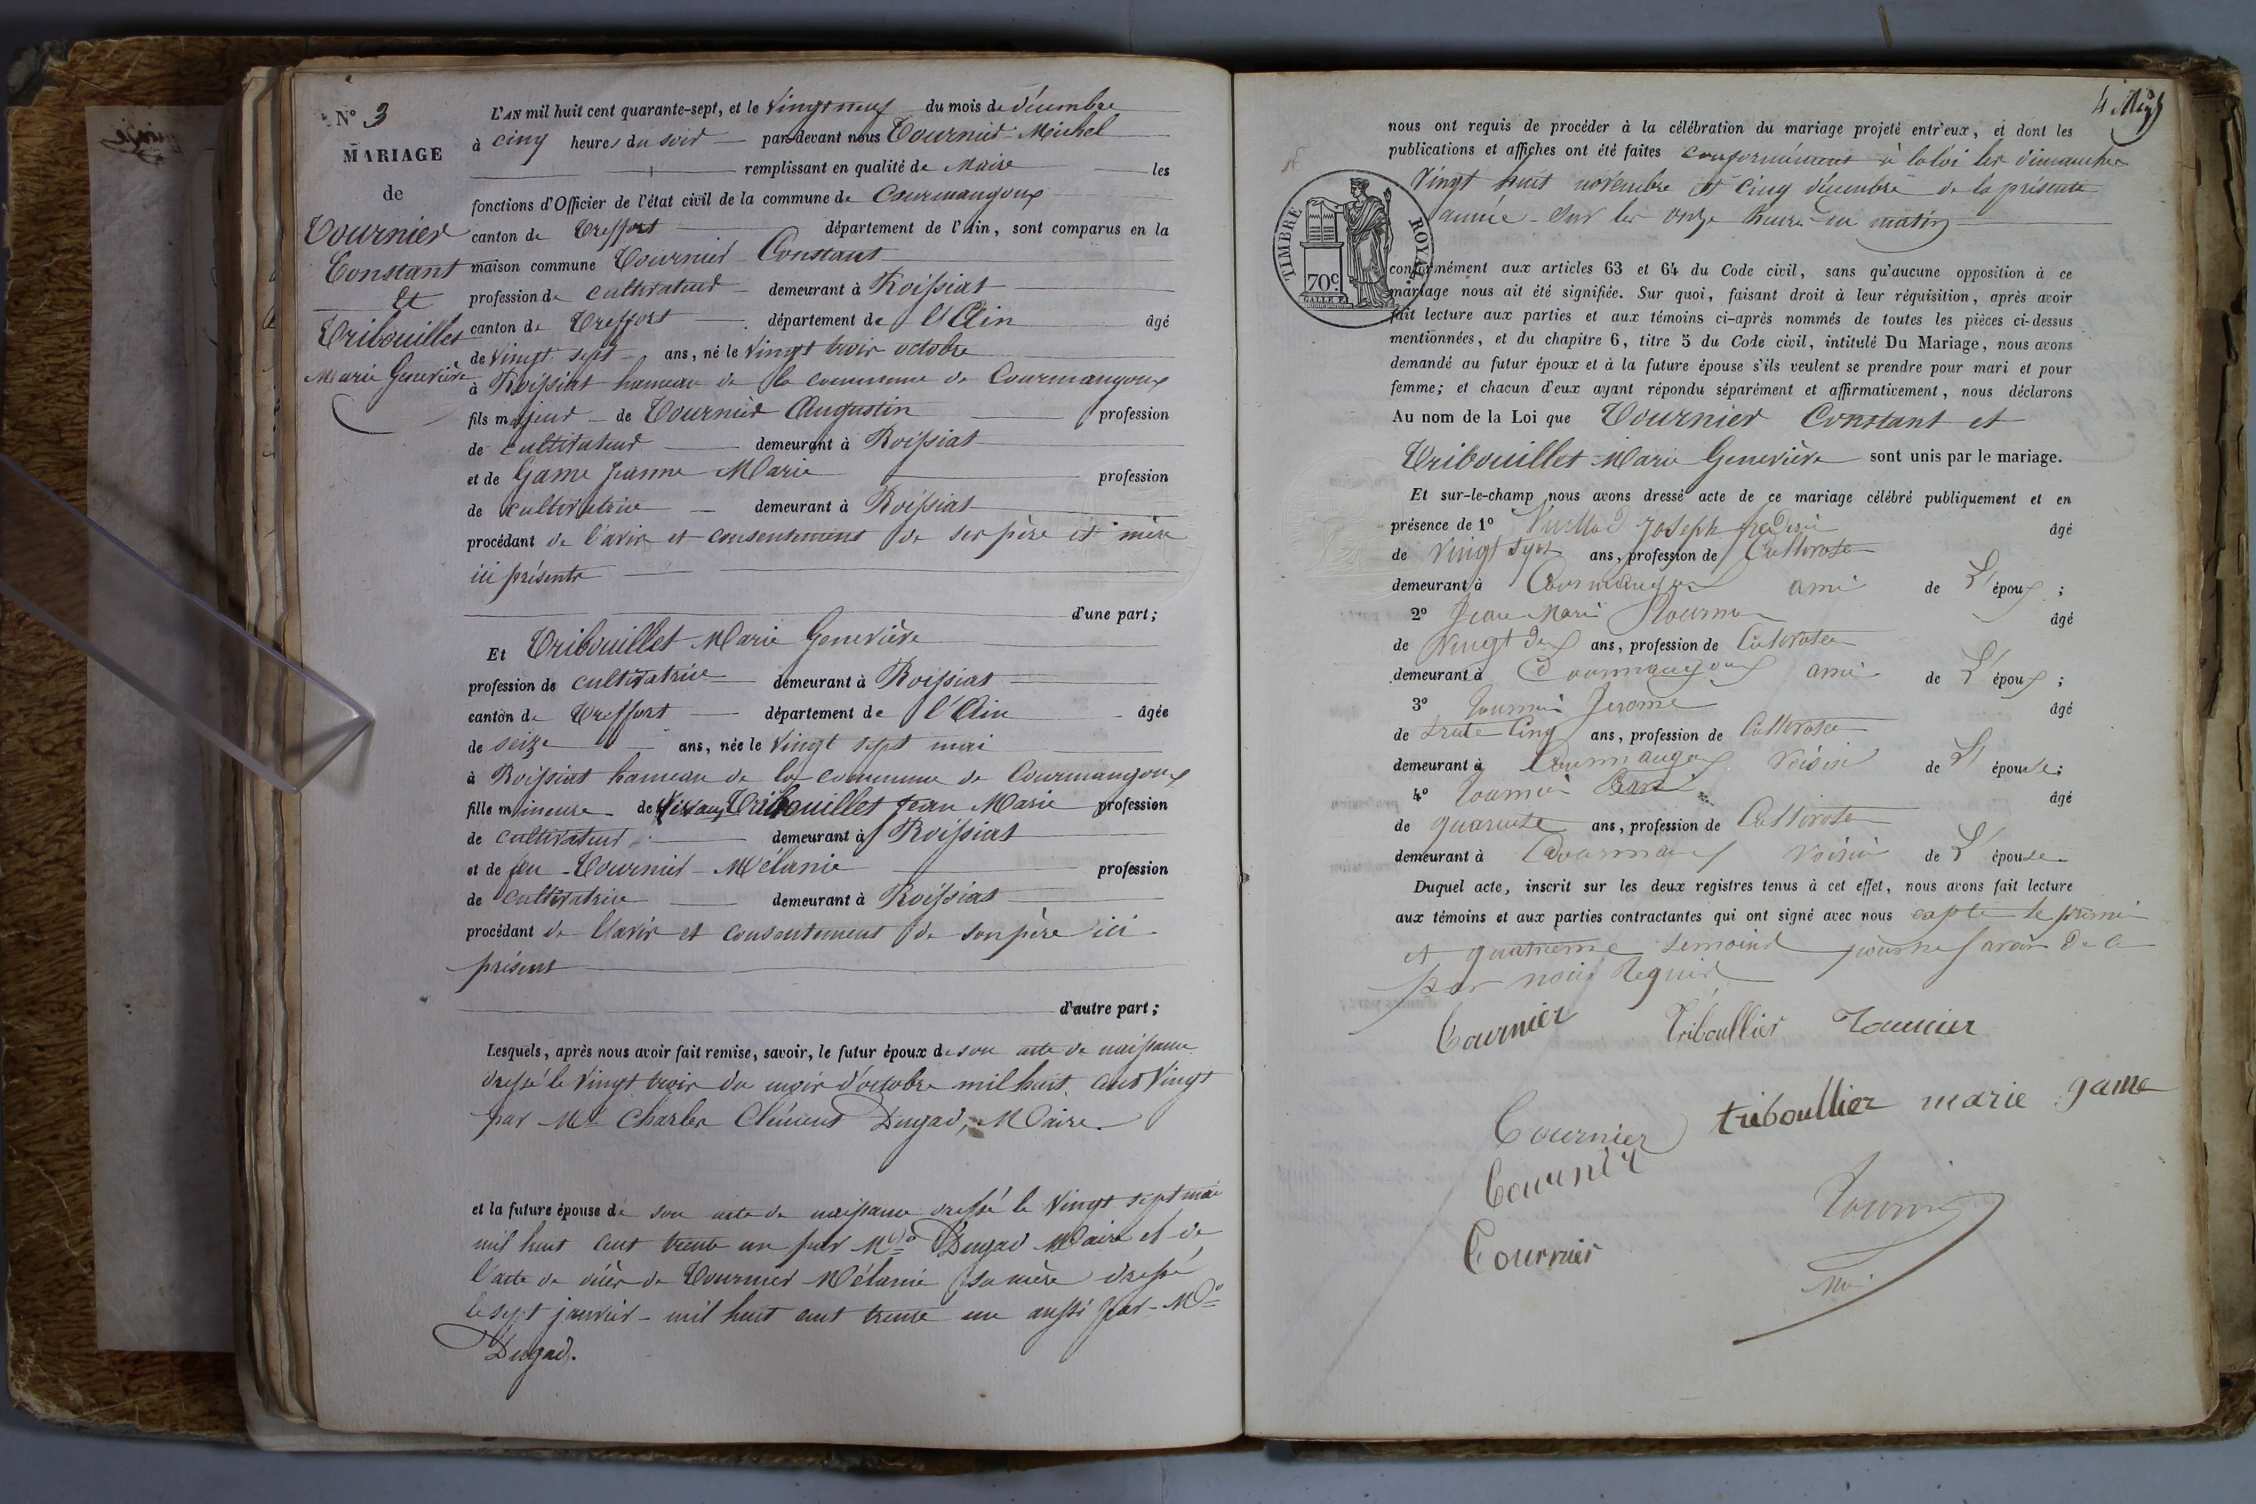 N° 3
MARIAGE
de
Tournier
Constant
Et
Tribouillet
Marie Genevière
L'AN mil huit cent quarante-sept, et le Vingt neuf du mois de décembre
à cinq heures du soir par-devant nous Tournier Michel
remplissant en qualité de Maire les
fonctions d'Officier de l'état civil de la commune de Courmangoux
canton de Treffort département de l'Ain, sont comparus en la
maison commune Tournier Constant
profession de cultivateur demeurant à Roissiat
canton de Treffort département de l'Ain âgé
de Vingt sept ans, né le Vingt trois octobre
à Roissiat hameau de la commune de Courmangoux
fils majeur de Tournier Augustin profession
de cultivateur demeurant à Roissiat
et de Game Jeanne Marie profession
de cultivatrice demeurant à Roissiat
procédant de l'avis et consentement de ses père et mère
ici présents
d'une part;
Et Tribouillet Marie Genevière
profession de cultivatrice demeurant à Roissiat
canton de Treffort département de l'Ain âgée
de seize ans, née le Vingt sept mai
à Roissiat hameau de la commune de Courmangoux
fille mineure de Tribouillet Jean Marie profession
de cultivateur demeurant à Roissiat
et de feu Tournier Mélanie profession
de cultivatrice demeurant à Roissiat
procédant de l'avis et consentement de son père ici
présent
d'autre part;
Lesquels, après nous avoir fait remise, savoir, le futur époux de son acte de naissance
dressé le Vingt trois du mois d'octobre mil huit cent Vingt
par Mr Charles Clément Dugad, Maire.
et la future épouse de son acte de naissance dressé le Vingt sept mai
mil huit cent trente un par Dugad Maire et de
l'acte de décès de Tournier Mélanie sa mère dressé
le sept janvier mil huit cent trente un aussi par
Dugad.
4
nous ont requis de procéder à la célébration du mariage projeté entr'eux, et dont les
publications et affiches ont été faites conformément à la loi les dimanches
Vingt huit novembre et cinq décembre de la présente
année sur les onze heures du matin
TIMBRE ROYAL
70c
conformément aux articles 63 et 64 du Code civil, sans qu'aucune opposition à ce
mariage nous ait été signifiée. Sur quoi, faisant droit à leur réquisition, après avoir
fait lecture aux parties et aux témoins ci-après nommés de toutes les pièces ci-dessus
mentionnées, et du chapitre 6, titre 5 du Code civil, intitulé Du Mariage, nous avons
demandé au futur époux et à la future épouse s'ils veulent se prendre pour mari et pour
femme; et chacun d'eux ayant répondu séparément et affirmativement, nous déclarons
Au nom de la Loi que Tournier Constant et
Tribouillet Marie Genevière sont unis par le mariage.
Et sur-le-champ nous avons dressé acte de ce mariage célébré publiquement et en
présence de 1° Joseph âgé
de Vingt sept ans, profession de
demeurant à ami de L'époux;
2° Jean Marie âgé
de Vingt ans, profession de
demeurant à Courmangoux ami de L'époux;
3° Tournier Jerome âgé
de trente Cinq ans, profession de
demeurant à Voisin de L'épouse;
4° Tournier âgé
de quarante ans, profession de
demeurant à Voisin de L'épouse
Duquel acte, inscrit sur les deux registres tenus à cet effet, nous avons fait lecture
aux témoins et aux parties contractantes qui ont signé avec nous le premier
et quatrieme
par nous Requis
Tournier
Triboullier
Tournier
Tournier
triboullier
marie game
Tournier
Tournier
Tournier